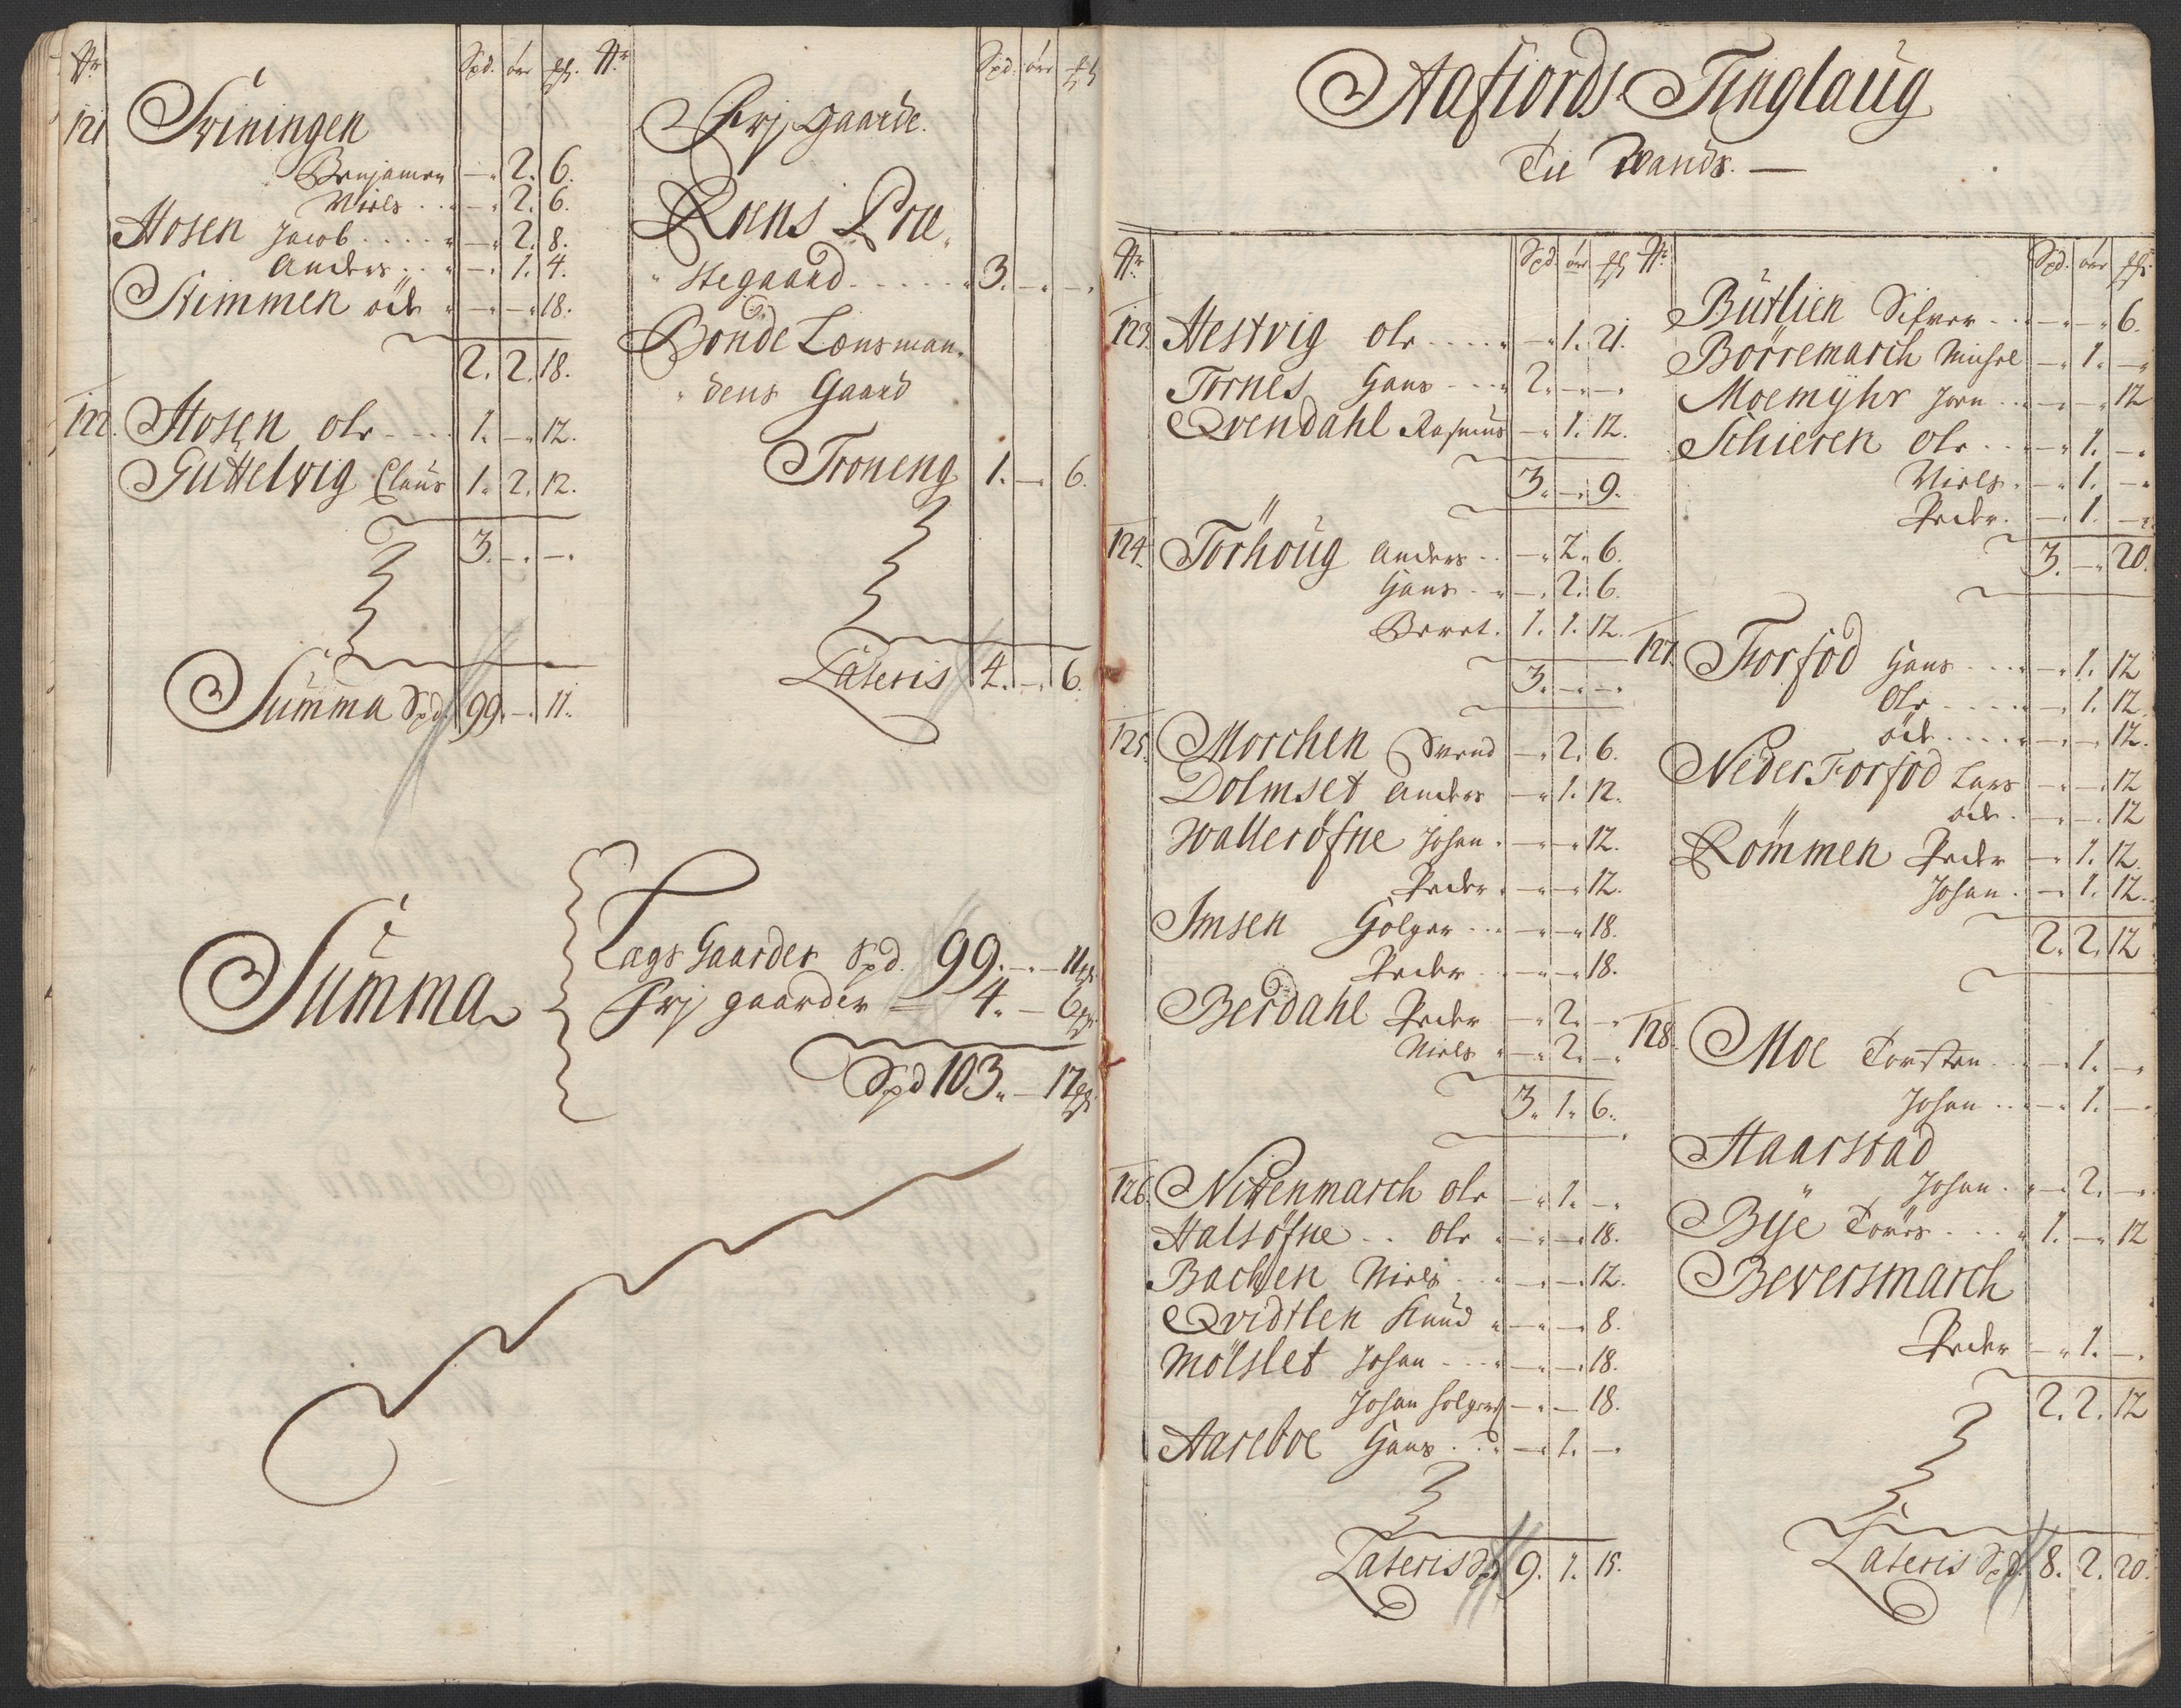 Nr Spd. ör ß.
121 Sviningen
Benjamen - 2. 6.
Niels - 2. 6.
Hosen Jacob - 2. 8.
Anders - 1. 4.
Skimmen öde - - 18.
2. 2. 18.
122. Hosen Ole 1. - 12.
Guttelvig Claus 1. 2. 12.
3. - -
Summa Spd. 99. - 11.
Nr Spd. ör ß
Frj gaarde.
Roens Præ
stegaard 3. - -
Bonde Lensman
dens Gaard
Troneng 1. - 6.
Lateris 4. - 6.
Summa
Lægs Gaarder Spd. 99. - 11ß
Frj gaarder = 4. - 6ß
Spd 103. - 17ß.
Aafiords Tinglaug
Til Lands.
Nr Spd. ör ß
123. Hestvig Ole - 1. 21.
Tornes Hans 2. - -
Qvendahl Rasmus - 1. 12.
3. - 9.
124. Törhoug Anders - 2. 6.
Hans - 2. 6.
Beret. 1. 1. 12.
3. - -
125. Morchen Svend - 2. 6.
Dolmset Anders - 1. 12.
Walleröfne Johan - - 12.
Peder - - 12.
Imsen Holger - - 18.
Peder - - 18.
Berdahl Peder - 2. -
Niels - 2. -
3. 1. 6.
126. Nittenmarch Ole - 1. -
Halsöfne Ole - - 18.
Bachen Niels - - 12.
Qvidtlen Knud - - 8.
Mölslet Johan - - 18.
Johan Holgers - - 18.
Aareboe Hans - 1. -
Lateris Spd 9. 1. 15.
Nr Spd. ör ß.
Butlien Sifver - - 6.
Börremarch Michel - 1. -
Moemyhr Jorn - - 12
Schieren Ole - 1. -
Niels - 1. -
Peder - 1. -
3. - 20.
127. Forfod Hans - 1. 12
Ole - 1. 12.
öde - - 12.
Neder Forfod Lars - - 12
öde - - 12
Römmen Peder - 1. 12.
Johan - 1. 12.
2. 2. 12
128. Moe Torsten - 1. -
Johan - 1. -
Haarstad
Johan - 2. -
Bye 1. - 12
Beversmarch
Peder - 1. -
2. 2. 12
Lateris Spd. 8. 2. 20.